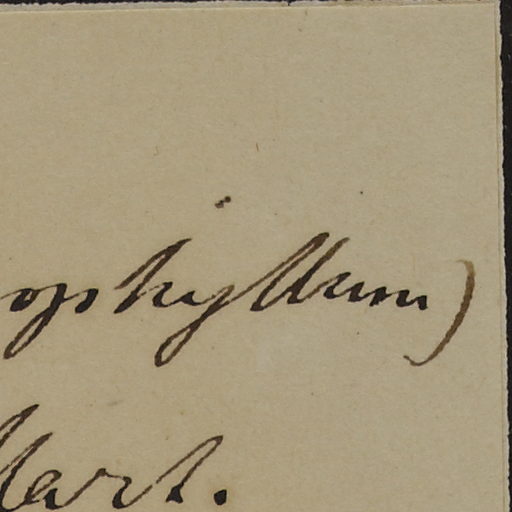 ophyllum)
Mart.